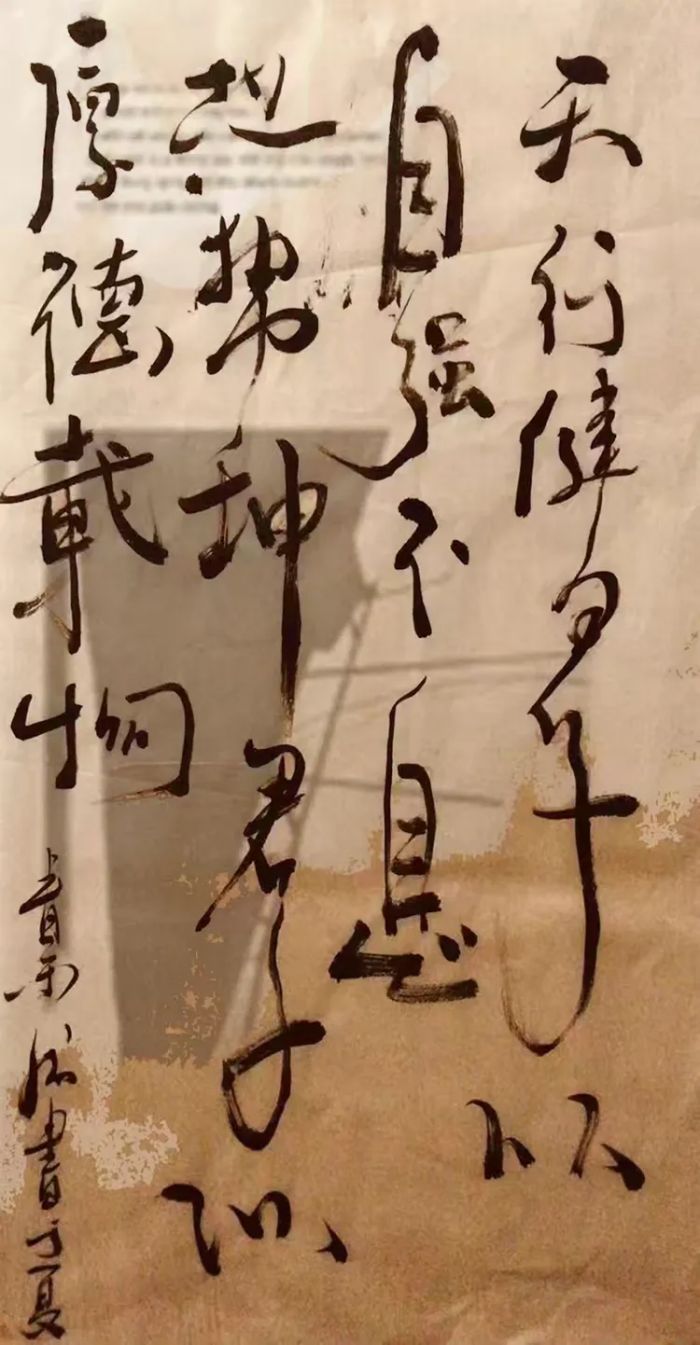 天行健君子以
自强不息
地势坤君子以
厚德載物
書于夏